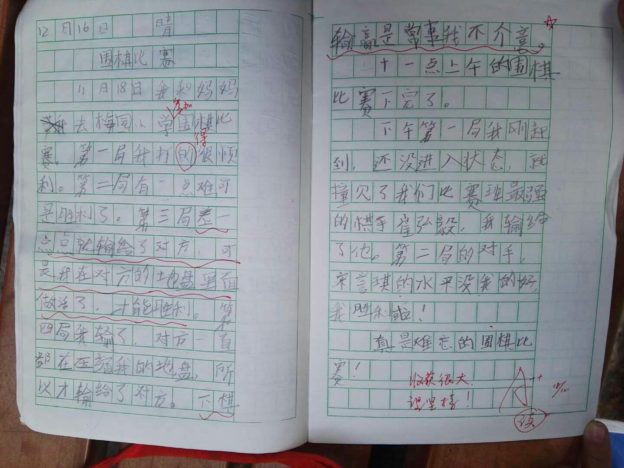 12月16日 晴
围棋比赛
11月18日我和妈妈
去梅园,参加围棋比
赛。第一局我打的得很顺
利。第二局有一点难可
是胜利了。第三局差一
点点就输给了对方,可
是我在对方的地盘里面
做活了,才能胜利。第
四局我输了,对方一直
都在压缩我的地盘,所
以才输给了对方。下棋
输赢是常事我不介意。
十一点上午的围棋
比赛下完了。
下午第一局我刚赶
到,还没进入状态,就
撞见了我们比赛班最强
的棋手崔弘毅,我输给
了他。第二局的对手,
宋言琪的水平没我的好
我胜利啦!
真是难忘的围棋比
赛!
收获很大,
课堂棒!
A+
读